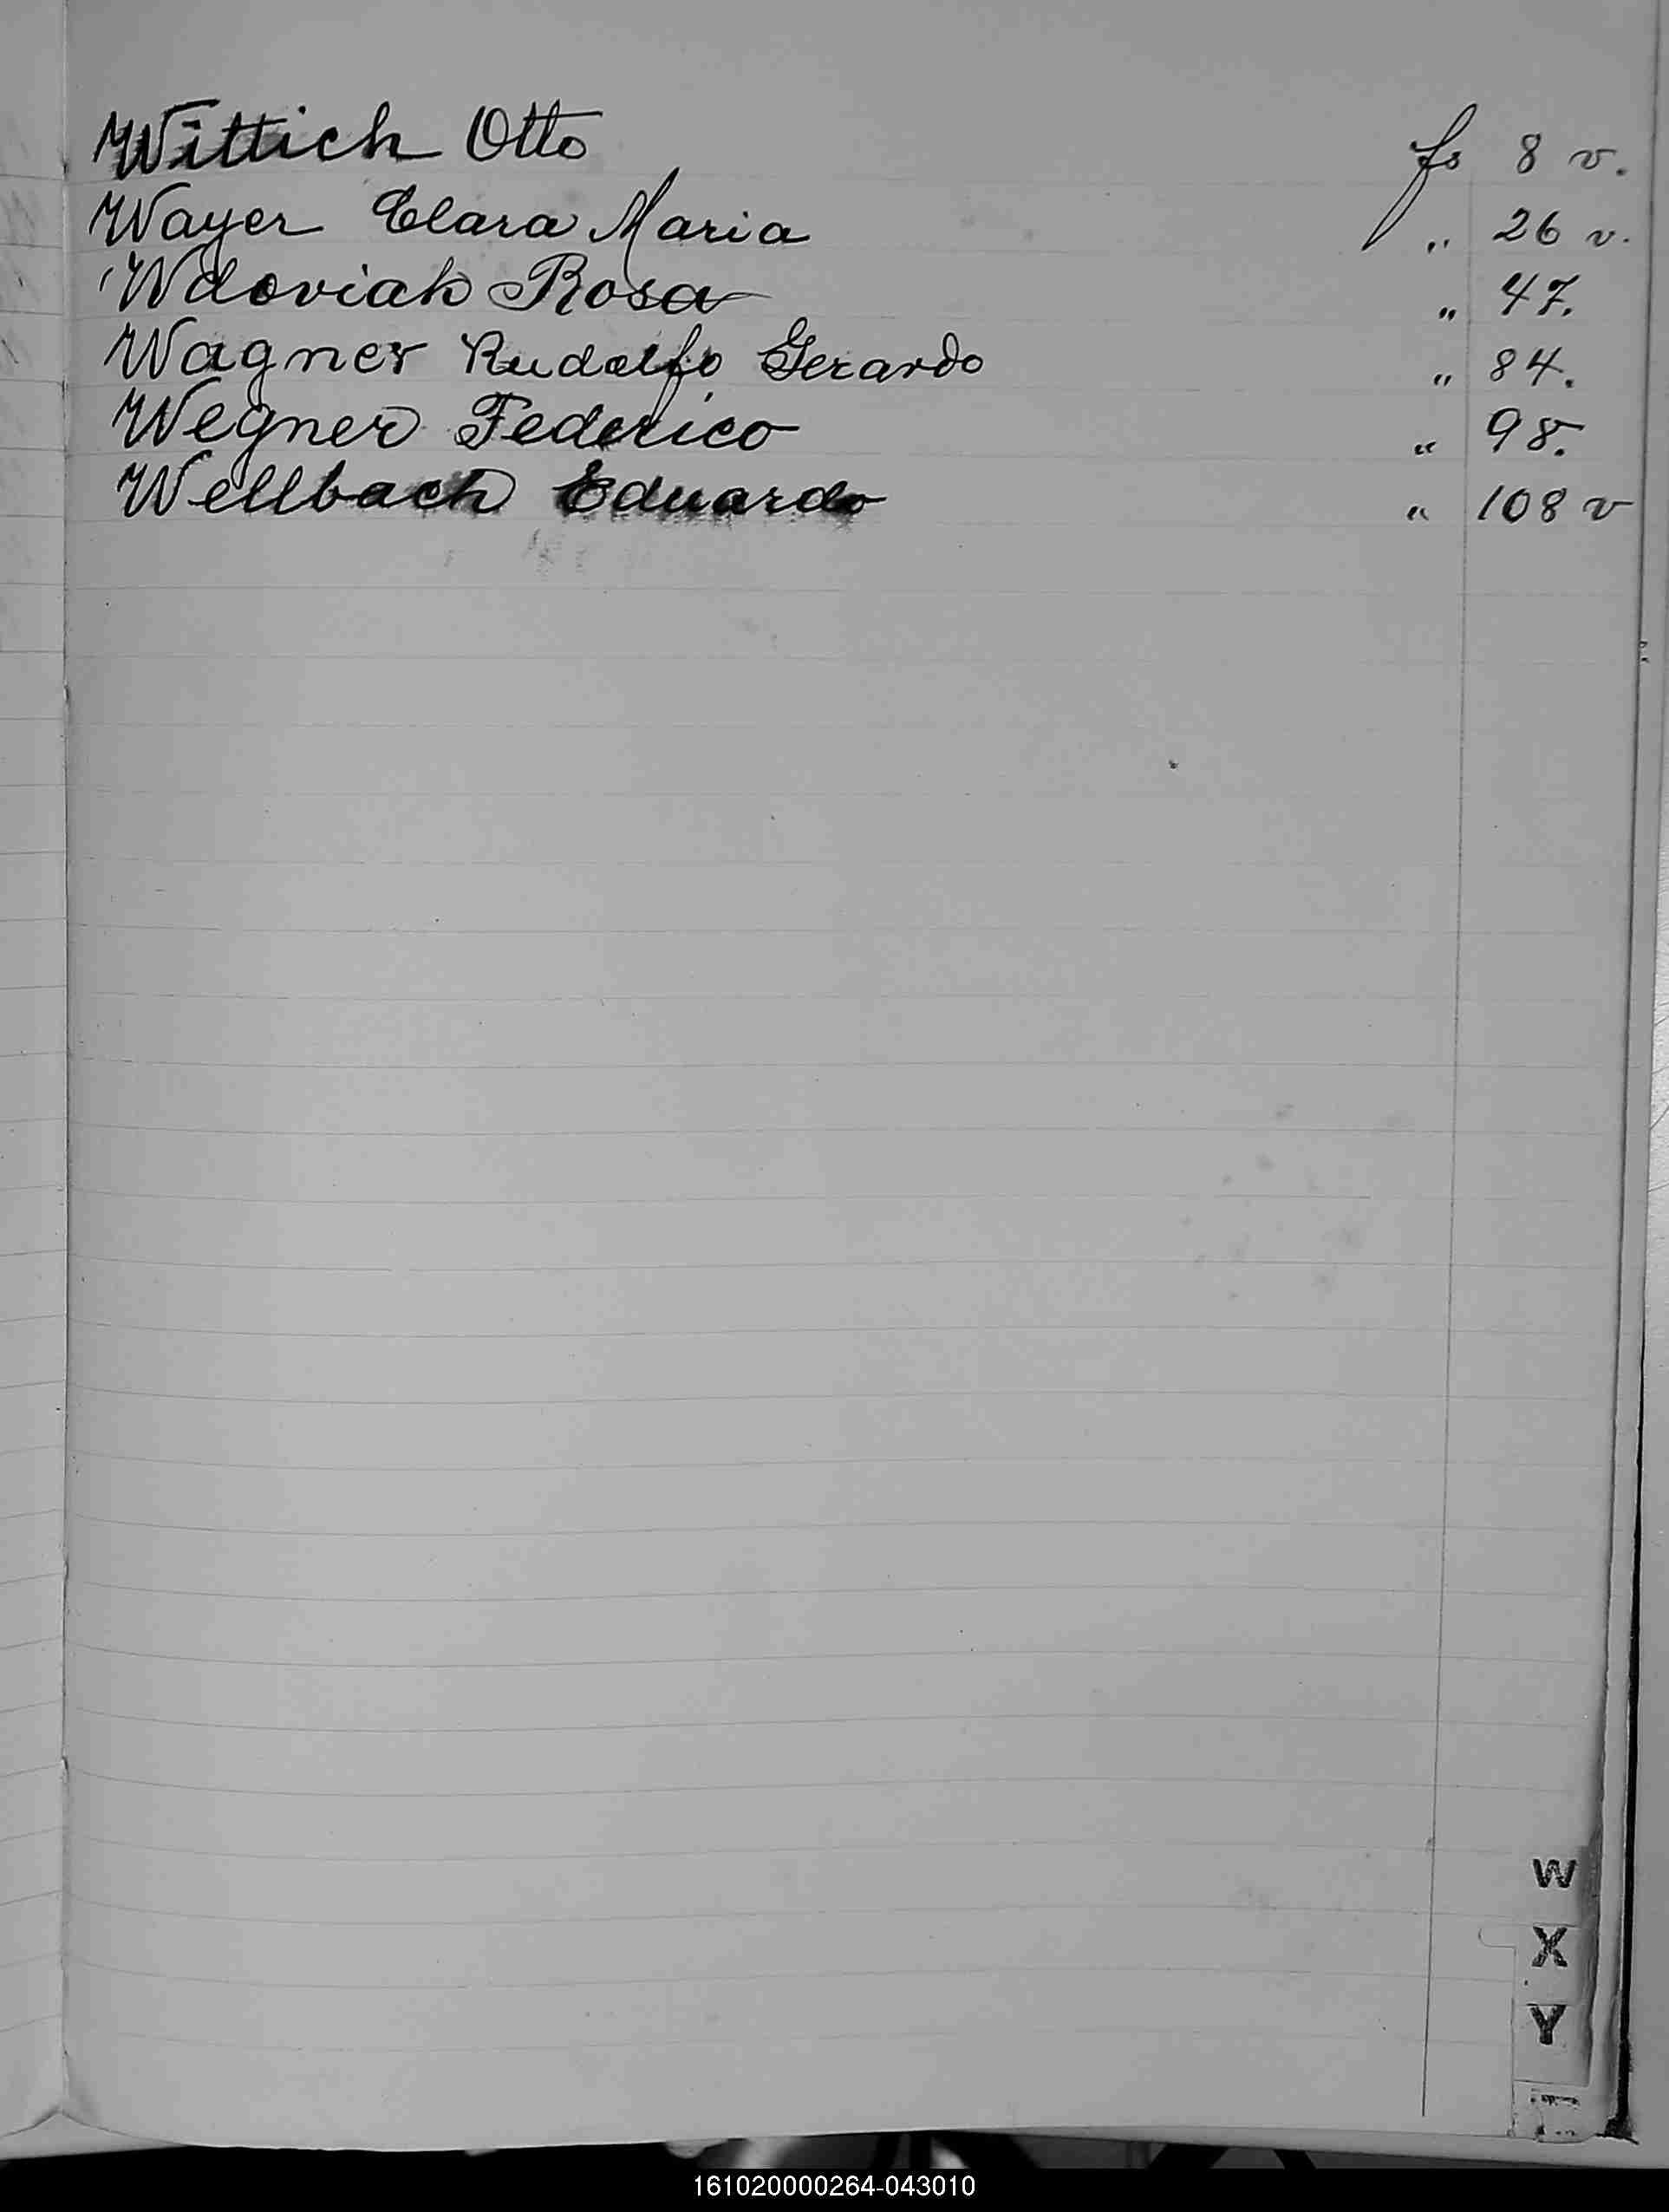 Wittich Otto fs 8 v.
Wayer Clara Maria " 26 v.
Wdoviak Rosa " 47.
Wagner Rudolfo Gerardo " 84.
Wegner Federico " 98.
Wellbach Eduardo " 108 v
W
X
Y
161020000264-043010